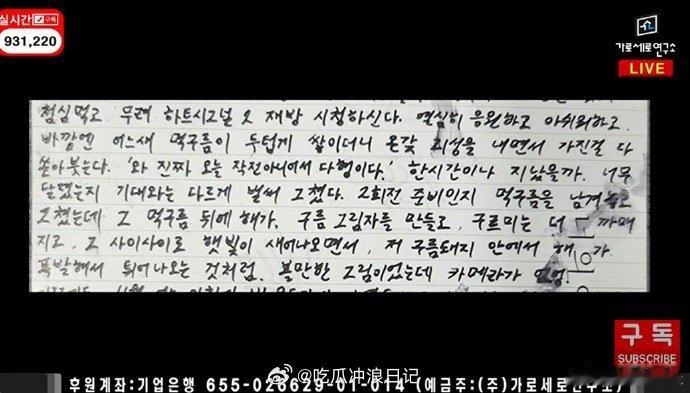 실시간 구독
931,220
가로세로연구소
LIVE
점심먹고 무려 하트시그널 2 재방 시청하신다. 열심히 응원하고 아쉬워하고.
바깥엔 어느새 먹구름이 두텁게 쌓이더니 온갖 괴성을 내면서 가진걸 다
쏟아붓는다. '와 진짜 오늘 작전아니어서 다행이다.' 한시간이나 지났을까. 너무
달렸는지 기대와는 다르게 벌써 그쳤다. 2회전 준비인지 먹구름을 남겨놓고
그쳤는데 그 먹구름 뒤에 해가. 구름 그림자를 만들고, 구르미는 더 까매
지고, 그 사이사이로 햇빛이 새어나오면서, 저 구름돼지 안에서 해가
폭발해서 튀어나오는 것처럼. 볼만한 그림이었는데 카메라가
구독
SUBSCRIBE
@吃瓜冲浪日记
후원계좌:기업은행 655-026629-01-014 (예금주:(주)가로세로연구소)